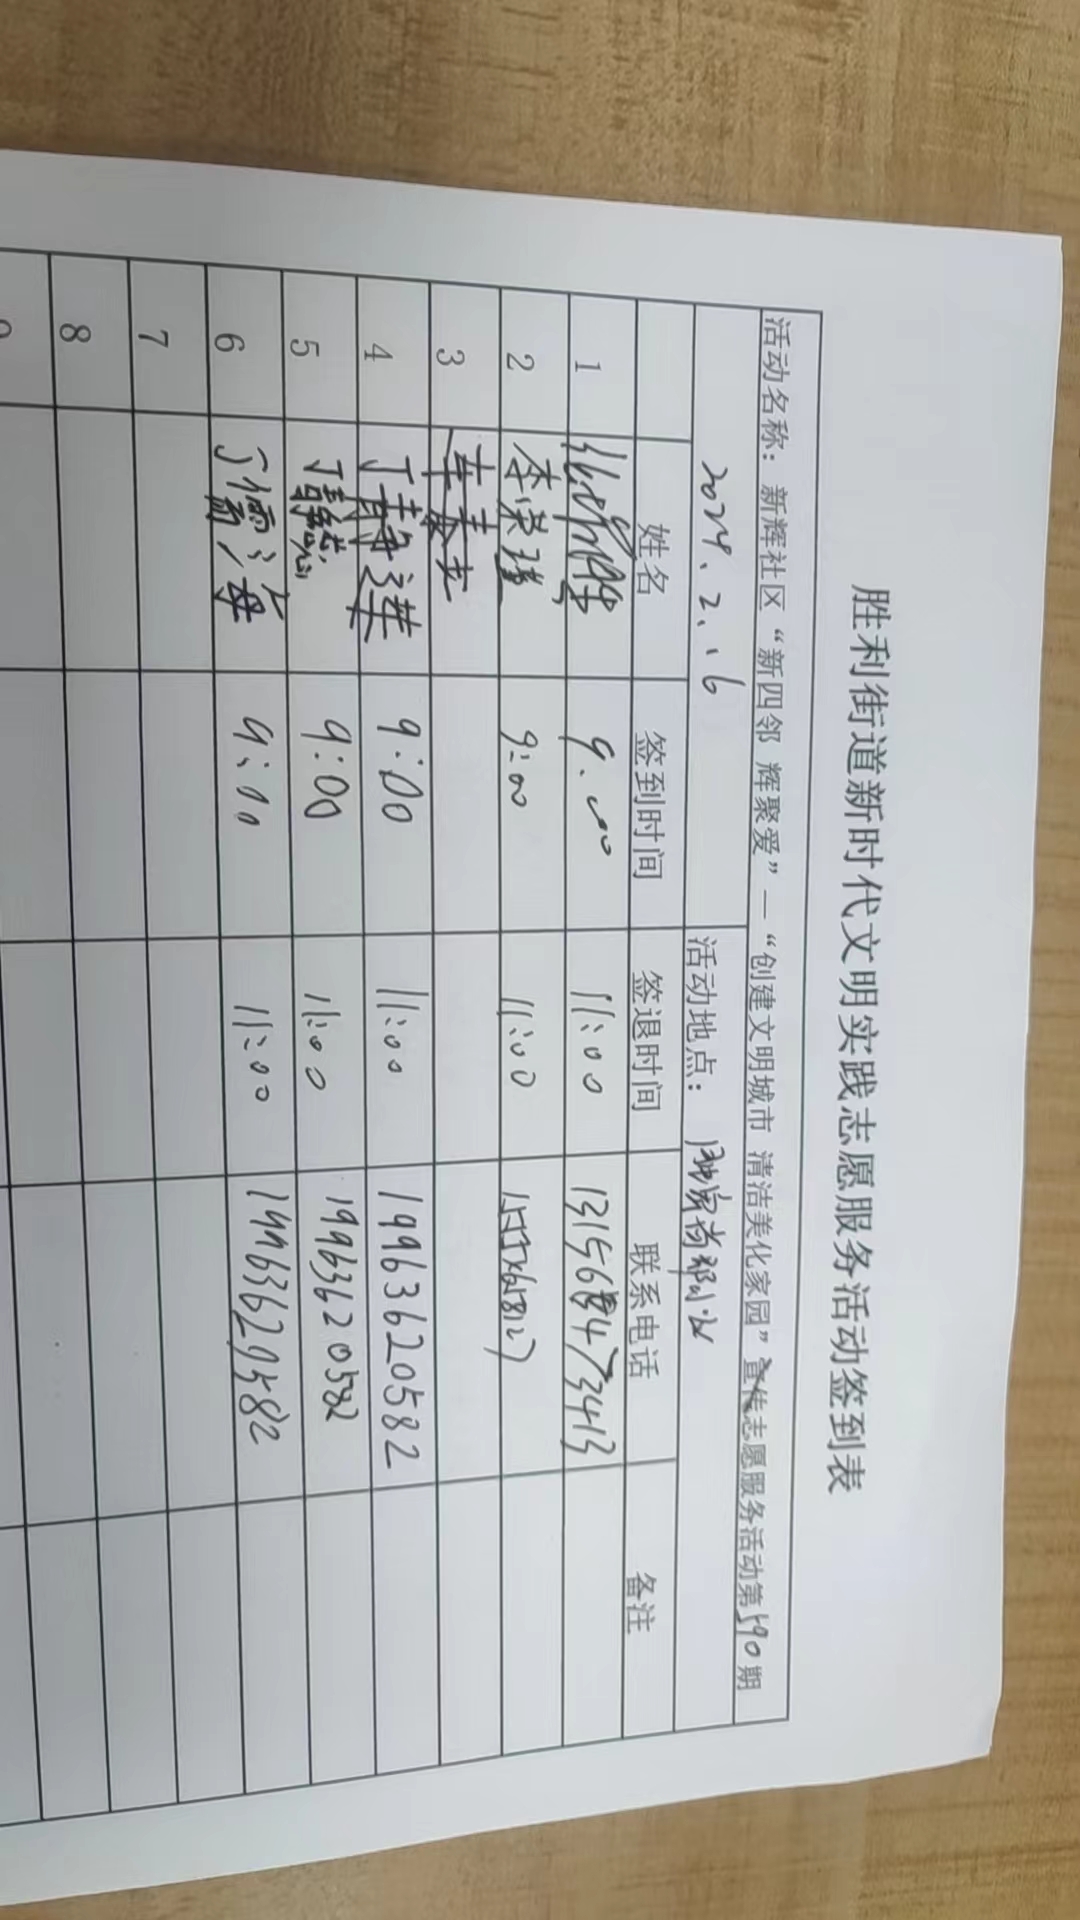 胜利街道新时代文明实践志愿服务活动签到表
活动名称：新辉社区“新四邻 辉聚爱”—“创建文明城市 清洁美化家园”宣传志愿服务活动第590期
2024.2.16 活动地点：
姓名 签到时间 签退时间 联系电话 备注
1 9:00 11:00
2 李荣 9:00 11:00
3
4 丁静 9:00 11:00 19963620582
5 丁 9:00 11:00 19963620582
6 丁儒海 9:00 11:00 19963620582
7
8